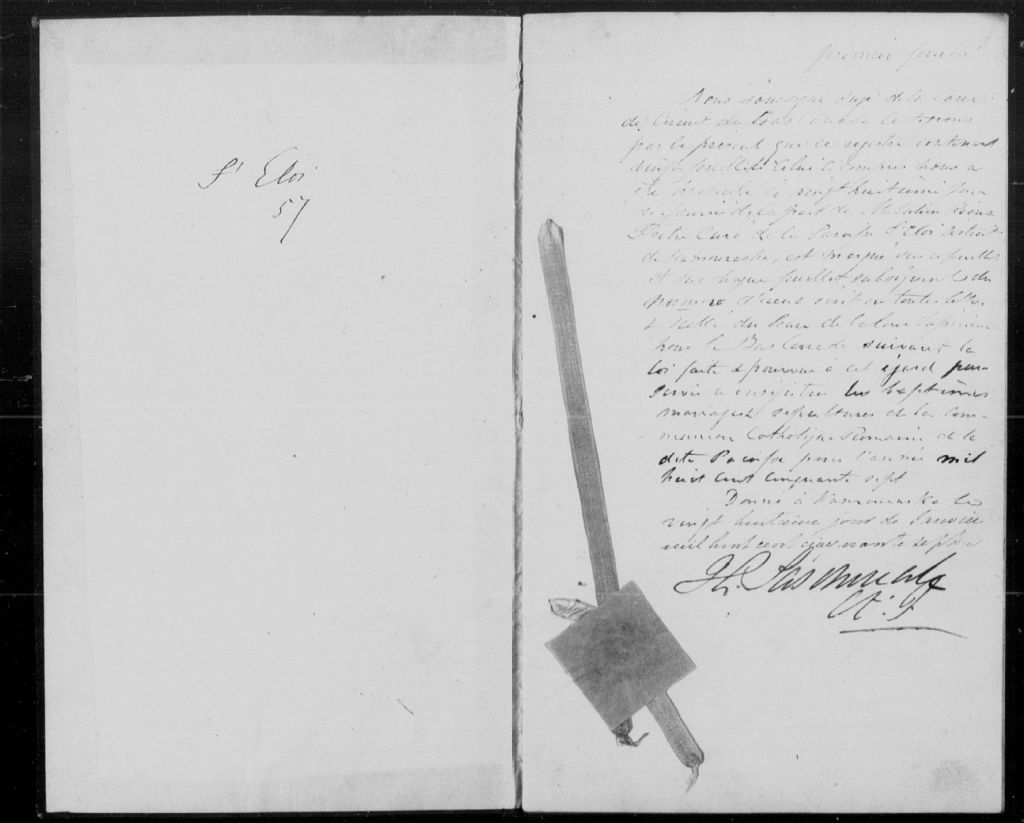 St Eloi
57
premier feuillet
Nous soussigné Juge de la Cour
de Circuit du Bas Canada Certifions
par le présent que ce registre contenant
vingt feuillets celui ci compris nous a
été présenté ce vingt huitième jour
de Janvier de la part de M.
Prêtre Curé de la Paroisse St Eloi District
de Kamouraska, est marqué sur ce feuillet
et sur chaque feuillet subséquent du
numero d'iceux écrit en toutes lettres
& scellé du Sceau de la Cour Supérieure
pour le Bas Canada suivant la
loi faite & pourvue à cet égard pour
servir a enrégistrer les baptêmes
mariages sépultures de la Com-
munion Catholique Romaine de la
dite Paroisse pour l'année mil
huit cent cinquante sept
Donné à Kamouraska le
vingt huitième jour de Janvier
mil huit cent cinquante sept